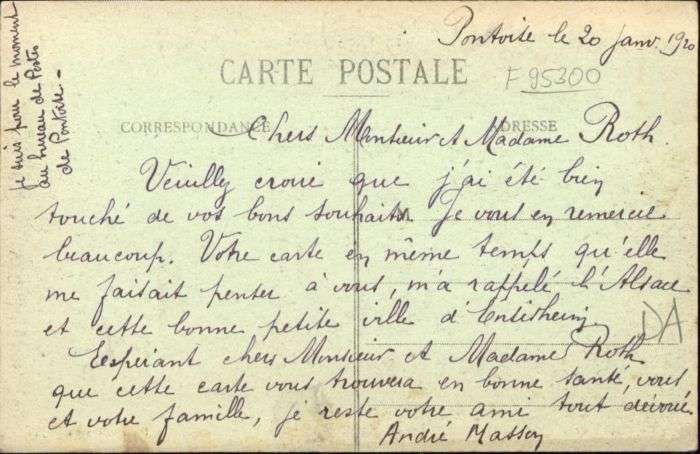 Pontoise le 20 janv. 1920
CARTE POSTALE
F 95300
CORRESPONDANCE
ADRESSE
Chers Monsieur et Madame Roth.
Veuillez croire que j'ai été bien
touché de vos bons souhaits. Je vous en remercie
beaucoup. Votre carte en même temps qu'elle
me faisait penser à vous, m'a rappelé l'Alsace
et cette bonne petite ville d'Ensisheim
DA
Espérant chers Monsieur et Madame Roth
que cette carte vous trouvera en bonne santé, vous
et votre famille, je reste votre ami tout dévoué
André Masson
Je suis pour le moment
au bureau de Postes
de Pontoise -